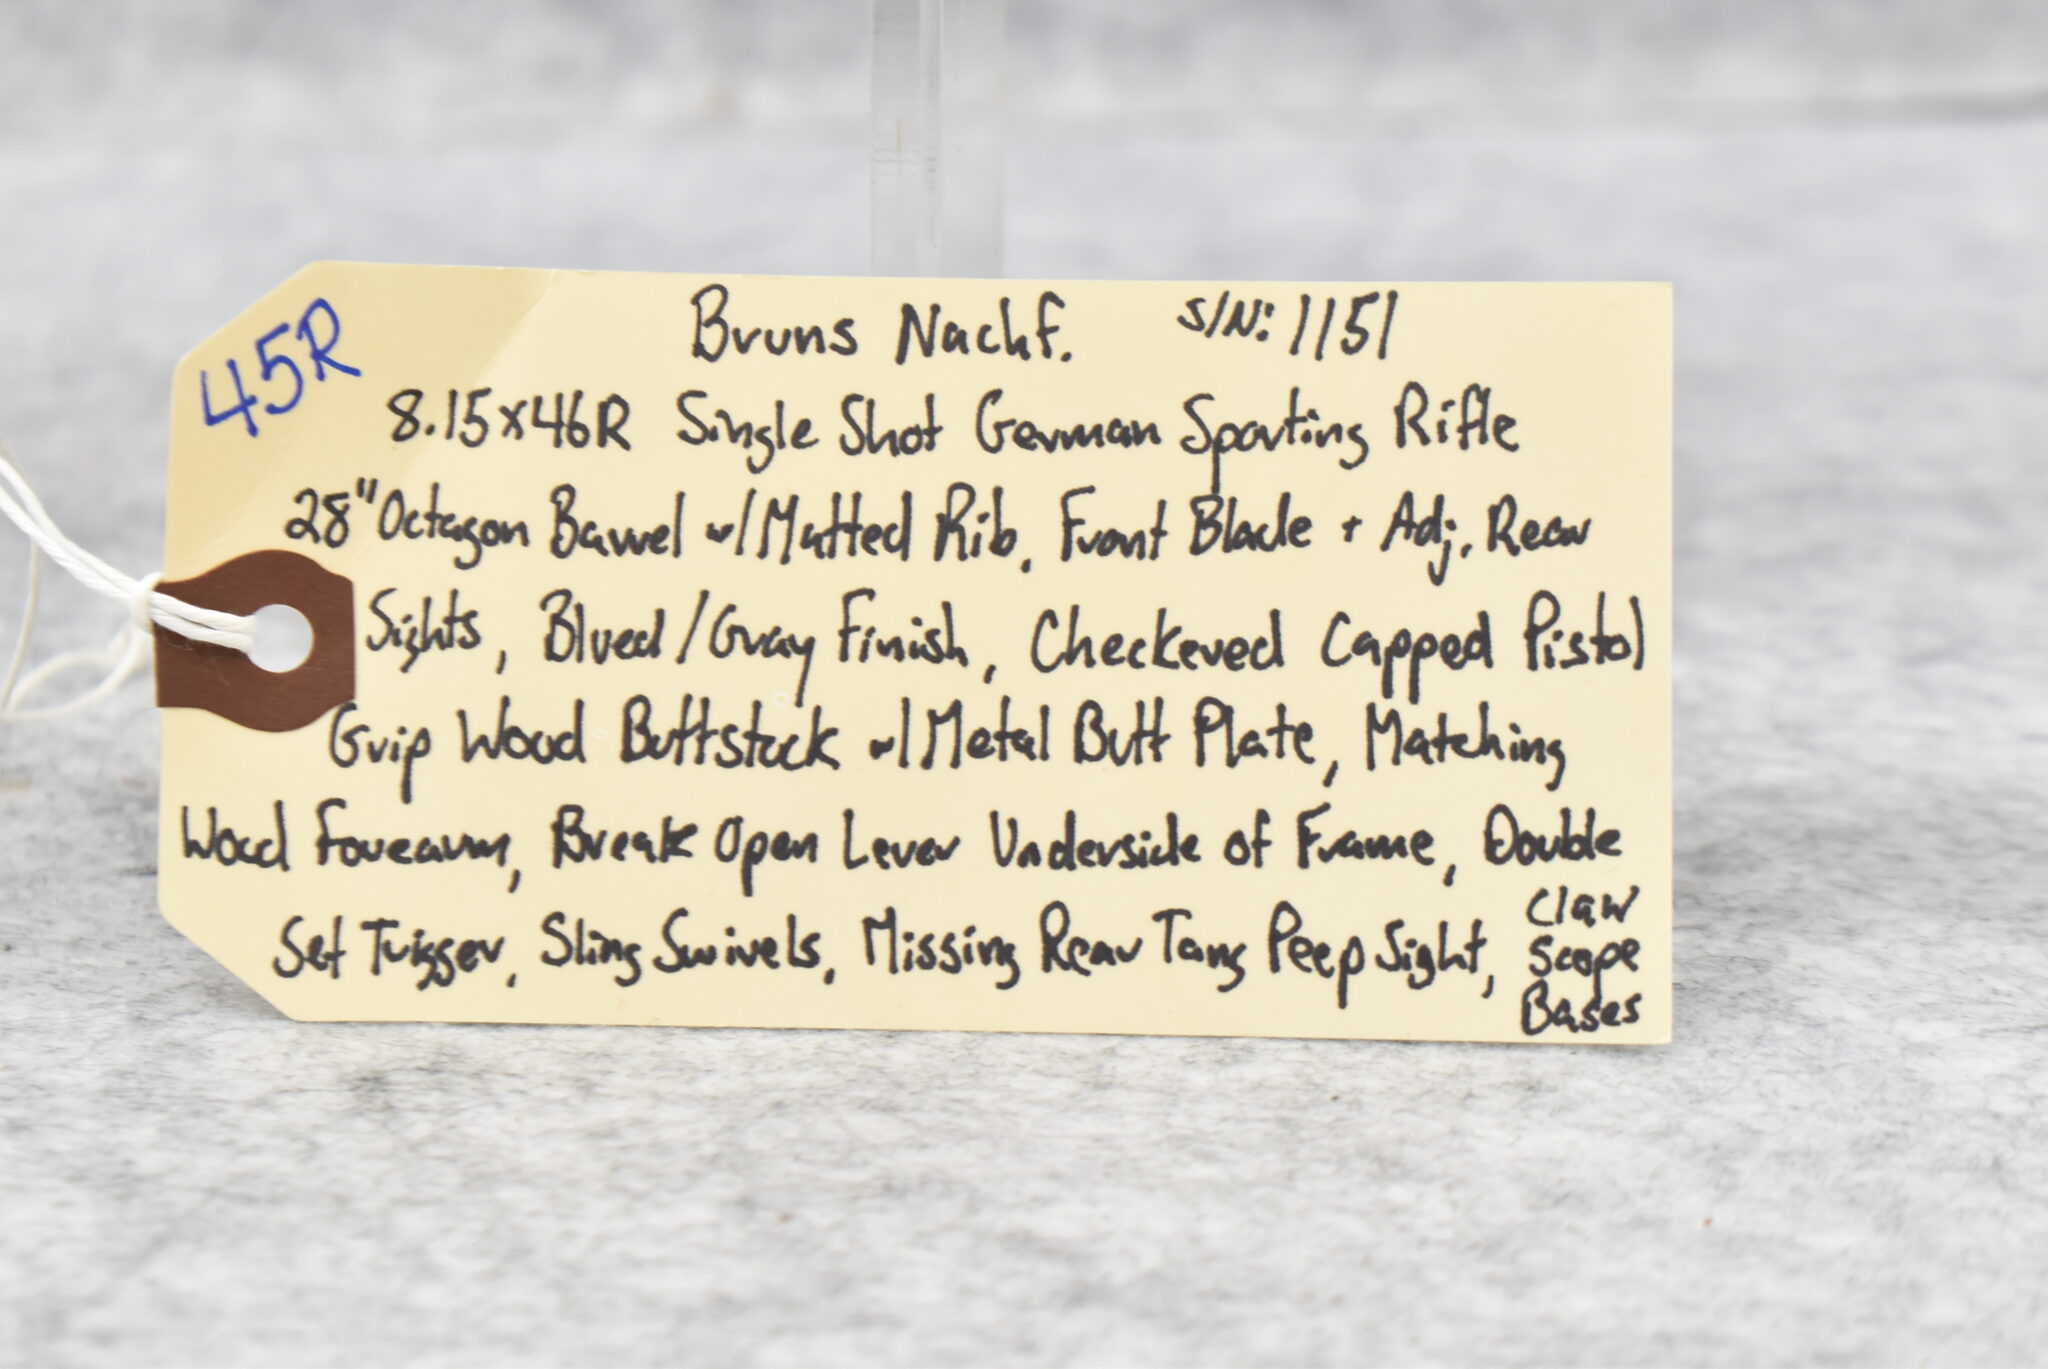 45R
Bruns Nachf. S/N: 1151
8.15x46R Single Shot German Sporting Rifle
28" Octagon Barrel w/ Matted Rib, Front Blade + Adj. Rear
Sights, Blued/Gray Finish, Checkered Capped Pistol
Grip Wood Buttstock w/ Metal Butt Plate, Matching
Wood Forearm, Break Open Lever Underside of Frame, Double
Set Trigger, Sling Swivels, Missing Rear Tang Peep Sight,
Claw
Scope
Bases